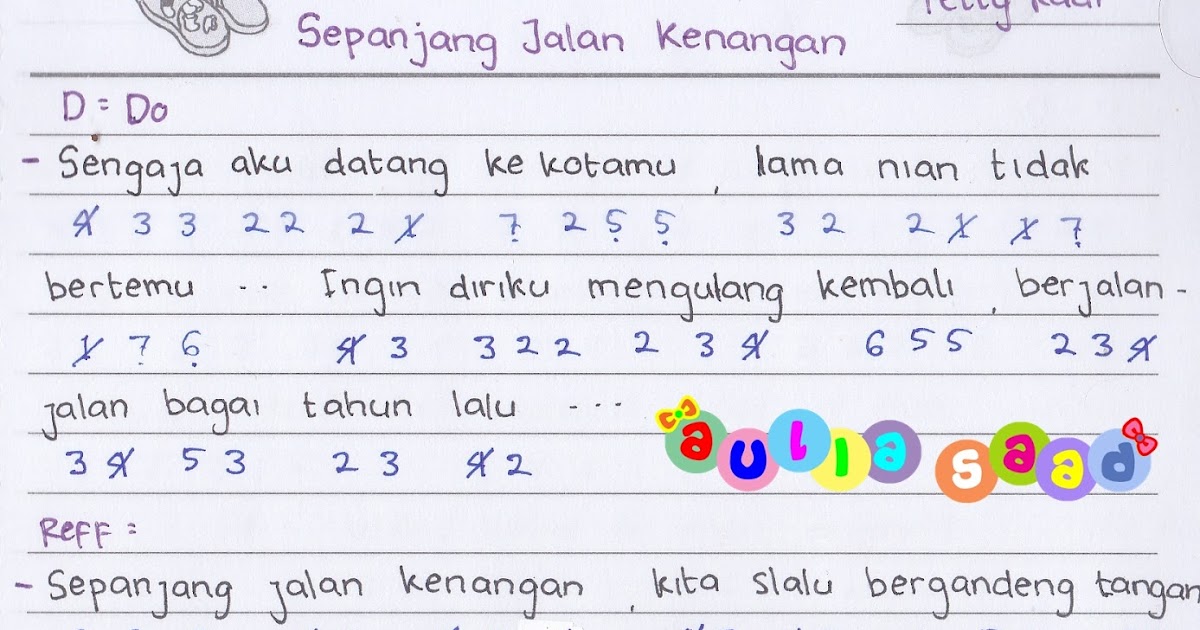 Tetty Kadi
Sepanjang Jalan Kenangan
D = Do
- Sengaja aku datang ke kotamu , lama nian tidak
4̸ 3 3 2 2 2 1̸ 7̣ 2 5̣ 5̣ 3 2 2 1̸ 1̸ 7̣
bertemu ... Ingin diriku mengulang kembali , berjalan -
1̸ 7 6̣ 4̸ 3 3 2 2 2 3 4̸ 6 5 5 2 3 4̸
jalan bagai tahun lalu ...
3 4̸ 5 3 2 3 4̸ 2
aulia saad
Reff :
- Sepanjang jalan kenangan , kita slalu bergandeng tangan